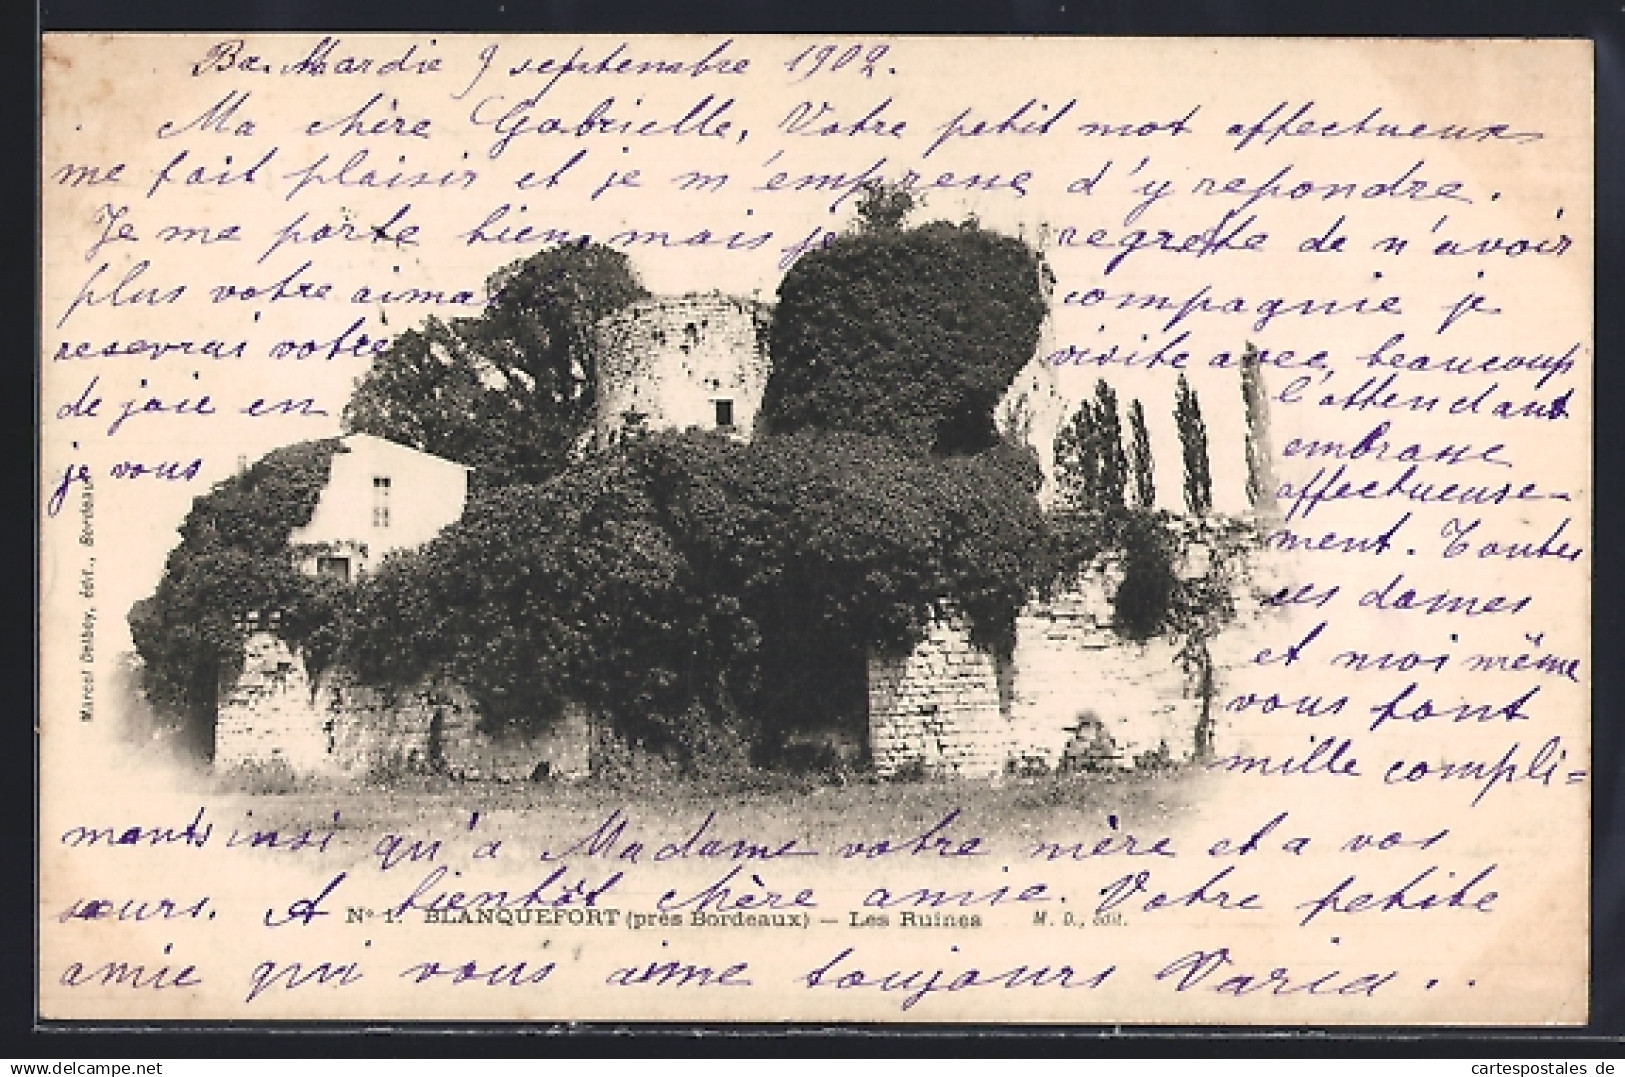 Mardie 9 septembre 1902.
Ma chère Gabrielle, Votre petit mot affectueux
me fait plaisir et je m'emprene d'y repondre.
Je me porte bien, mais je regrête de n'avoir
plus votre aima compagnie je
resevrai votre visite avec, beaucoup
de joie en l'attendant
je vous embrasse
affectueuse-
ment. Toutes
ces dames
et moi même
vous font
mille compli=
ments insi qu'a Madame votre mère et a vos
sœurs. A bientôt chère amie. Votre petite
Nº 1. BLANQUEFORT (près Bordeaux) — Les Ruines M. D., édit.
amie qui vous aime toujours Varia..
Marcel Delboy, édit., Bordeaux
cartespostales de
www.delcampe.net